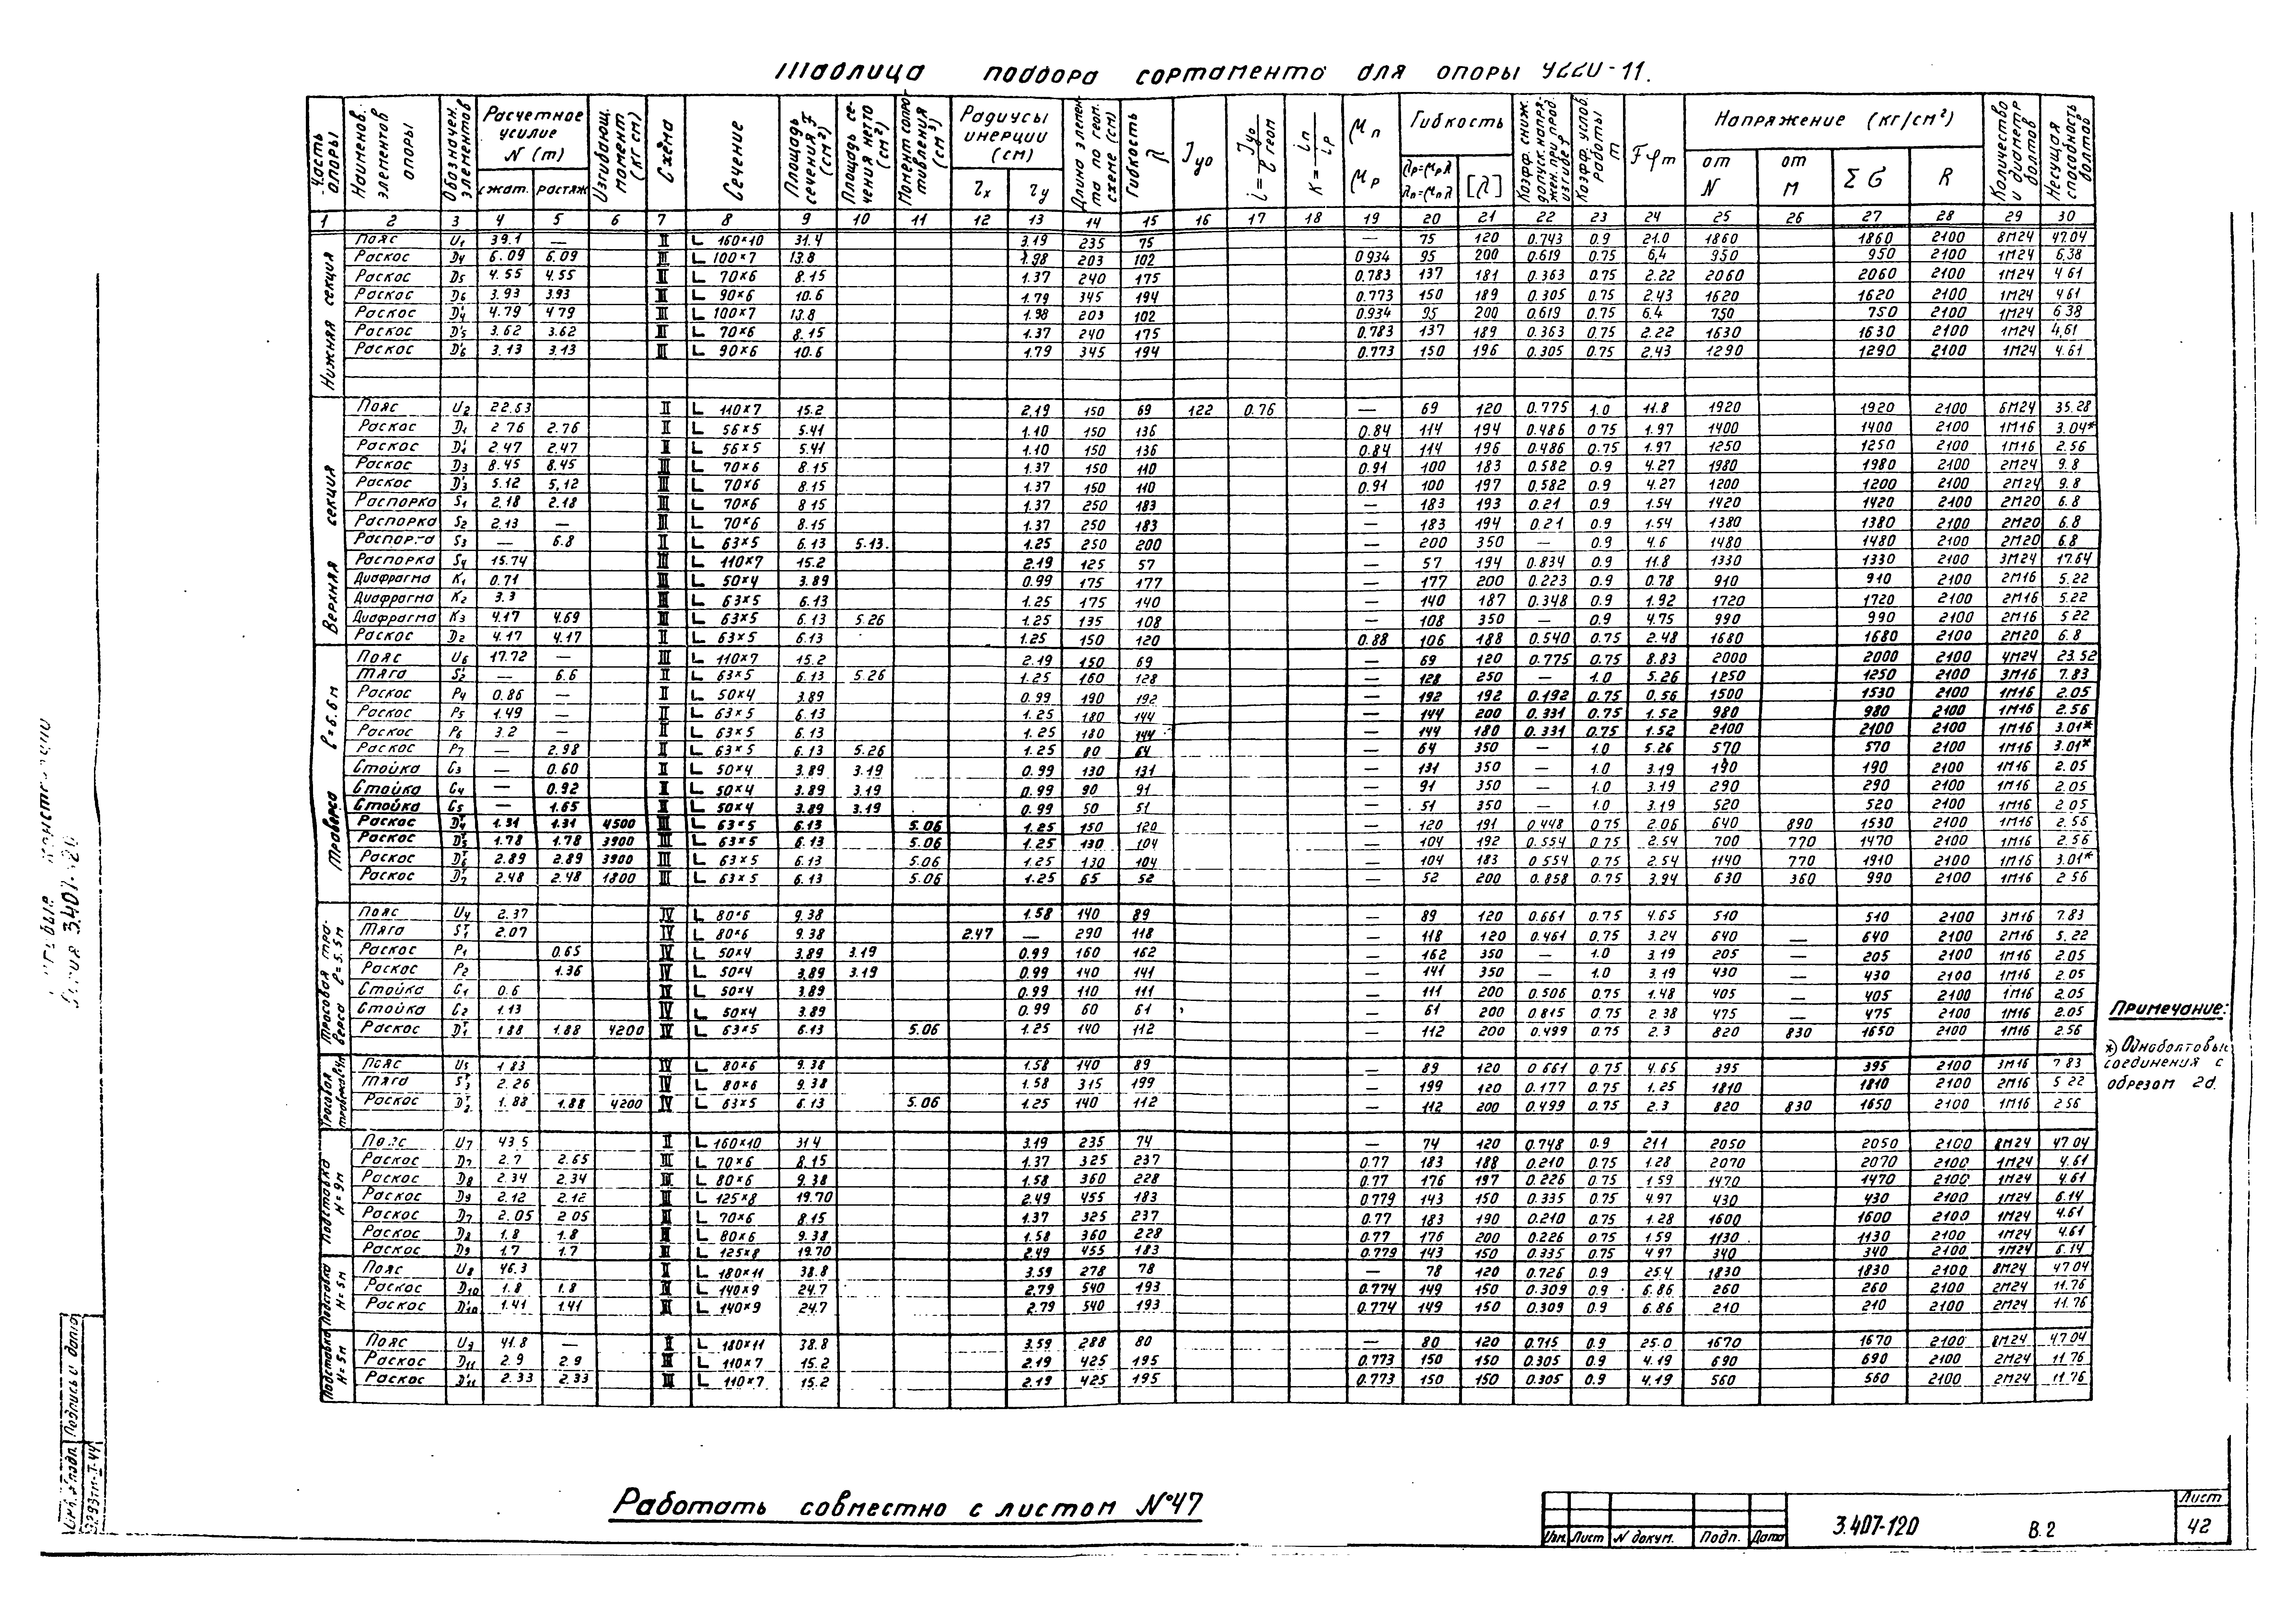 Таблица подбора сортамента для опоры У220-11.
Часть опоры | Наименов. элементов опоры | Обозначен. элементов | Расчетное усилие N (т) сжат. | растяж | Изгибающ. момент (кг см) | Схема | Сечение | Площадь сечения F (см²) | Площадь сечения нетто (см²) | Момент сопротивления (см³) | Радиусы инерции (см) rx | ry | Длина элемента по геом. схеме (см) | Гибкость λ | Jyo | i = Jyo / l геом | K = iп / iр | μп μр | Гибкость λр=μрλ λп=μпλ | [λ] | Коэфф. сниж. допуск. напряжен. при прод. изгибе φ | Коэфф. услов. работы m | Fφm | Напряжение (кг/см²) от N | от М | Σ G | R | Количество и диаметр болтов | Несущая способность болтов
1 2 3 4 5 6 7 8 9 10 11 12 13 14 15 16 17 18 19 20 21 22 23 24 25 26 27 28 29 30
Нижняя секция
Пояс U1 39.1 — II L 160×10 31.4 3.19 235 75 — 75 120 0.743 0.9 21.0 1860 1860 2100 8М24 47.04
Раскос D4 6.09 6.09 III L 100×7 13.8 1.98 203 102 0.934 95 200 0.619 0.75 6.4 950 950 2100 1М24 6.38
Раскос D5 4.55 4.55 III L 70×6 8.15 1.37 240 175 0.783 137 181 0.363 0.75 2.22 2060 2060 2100 1М24 4.61
Раскос D6 3.93 3.93 III L 90×6 10.6 1.79 345 194 0.773 150 189 0.305 0.75 2.43 1620 1620 2100 1М24 4.61
Раскос D'4 4.79 4.79 III L 100×7 13.8 1.98 203 102 0.934 95 200 0.619 0.75 6.4 750 750 2100 1М24 6.38
Раскос D'5 3.62 3.62 III L 70×6 8.15 1.37 240 175 0.783 137 189 0.363 0.75 2.22 1630 1630 2100 1М24 4.61
Раскос D'6 3.13 3.13 III L 90×6 10.6 1.79 345 194 0.773 150 196 0.305 0.75 2.43 1290 1290 2100 1М24 4.61
Верхняя секция
Пояс U2 22.53 II L 110×7 15.2 2.19 150 69 122 0.76 — 69 120 0.775 1.0 11.8 1920 1920 2100 6М24 35.28
Раскос D1 2.76 2.76 II L 56×5 5.41 1.10 150 136 0.84 114 194 0.486 0.75 1.97 1400 1400 2100 1М16 3.04*
Раскос D'1 2.47 2.47 II L 56×5 5.41 1.10 150 136 0.84 114 196 0.486 0.75 1.97 1250 1250 2100 1М16 2.56
Раскос D3 8.45 8.45 III L 70×6 8.15 1.37 150 110 0.91 100 183 0.582 0.9 4.27 1980 1980 2100 2М24 9.8
Раскос D'3 5.12 5.12 III L 70×6 8.15 1.37 150 110 0.91 100 197 0.582 0.9 4.27 1200 1200 2100 2М24 9.8
Распорка S1 2.18 2.18 III L 70×6 8.15 1.37 250 183 — 183 193 0.21 0.9 1.54 1420 1420 2100 2М20 6.8
Распорка S2 2.13 — III L 70×6 8.15 1.37 250 183 — 183 194 0.21 0.9 1.54 1380 1380 2100 2М20 6.8
Распорка S3 — 6.8 II L 63×5 6.13 5.13. 1.25 250 200 — 200 350 — 0.9 4.6 1480 1480 2100 2М20 6.8
Распорка S4 15.74 III L 110×7 15.2 2.19 125 57 — 57 194 0.834 0.9 11.8 1330 1330 2100 3М24 17.64
Диафрагма K1 0.71 III L 50×4 3.89 0.99 175 177 — 177 200 0.223 0.9 0.78 910 910 2100 2М16 5.22
Диафрагма K2 3.3 III L 63×5 6.13 1.25 175 140 — 140 187 0.348 0.9 1.92 1720 1720 2100 2М16 5.22
Диафрагма K3 4.17 4.69 III L 63×5 6.13 5.26 1.25 135 108 — 108 350 — 0.9 4.75 990 990 2100 2М16 5.22
Раскос D2 4.17 4.17 II L 63×5 6.13 1.25 150 120 0.88 106 188 0.540 0.75 2.48 1680 1680 2100 2М20 6.8
Траверса ℓ=6.6м
Пояс U6 17.72 — III L 110×7 15.2 2.19 150 69 — 69 120 0.775 0.75 8.83 2000 2000 2100 4М24 23.52
Тяга S'2 — 6.6 II L 63×5 6.13 5.26 1.25 160 128 — 128 250 — 1.0 5.26 1250 1250 2100 3М16 7.83
Раскос P4 0.86 — II L 50×4 3.89 0.99 190 192 — 192 192 0.192 0.75 0.56 1500 1530 2100 1М16 2.05
Раскос P5 1.49 — II L 63×5 6.13 1.25 180 144 — 144 200 0.331 0.75 1.52 980 980 2100 1М16 2.56
Раскос P6 3.2 — II L 63×5 6.13 1.25 180 144 — 144 180 0.331 0.75 1.52 2100 2100 2100 1М16 3.01*
Раскос P7 — 2.98 II L 63×5 6.13 5.26 1.25 80 64 — 64 350 — 1.0 5.26 570 570 2100 1М16 3.01*
Стойка C3 — 0.60 II L 50×4 3.89 3.19 0.99 130 131 — 131 350 — 1.0 3.19 190 190 2100 1М16 2.05
Стойка C4 — 0.92 II L 50×4 3.89 3.19 0.99 90 91 — 91 350 — 1.0 3.19 290 290 2100 1М16 2.05
Стойка C5 — 1.65 II L 50×4 3.89 3.19 0.99 50 51 — 51 350 — 1.0 3.19 520 520 2100 1М16 2.05
Раскос DT4 1.31 1.31 4500 III L 63×5 6.13 5.06 1.25 150 120 — 120 191 0.448 0.75 2.06 640 890 1530 2100 1М16 2.56
Раскос DT5 1.78 1.78 3900 III L 63×5 6.13 5.06 1.25 130 104 — 104 192 0.554 0.75 2.54 700 770 1470 2100 1М16 2.56
Раскос DT6 2.89 2.89 3900 III L 63×5 6.13 5.06 1.25 130 104 — 104 183 0.554 0.75 2.54 1140 770 1910 2100 1М16 3.01*
Раскос DT7 2.48 2.48 1800 III L 63×5 6.13 5.06 1.25 65 52 — 52 200 0.858 0.75 3.94 630 360 990 2100 1М16 2.56
Тросовая траверса ℓ=5.5м
Пояс U4 2.37 IV L 80×6 9.38 1.58 140 89 — 89 120 0.661 0.75 4.65 510 510 2100 3М16 7.83
Тяга ST1 2.07 IV L 80×6 9.38 2.47 — 290 118 — 118 120 0.461 0.75 3.24 640 — 640 2100 2М16 5.22
Раскос P1 0.65 IV L 50×4 3.89 3.19 0.99 160 162 — 162 350 — 1.0 3.19 205 — 205 2100 1М16 2.05
Раскос P2 1.36 IV L 50×4 3.89 3.19 0.99 140 141 — 141 350 — 1.0 3.19 430 — 430 2100 1М16 2.05
Стойка C1 0.6 IV L 50×4 3.89 0.99 110 111 — 111 200 0.506 0.75 1.48 405 — 405 2100 1М16 2.05
Стойка C2 1.13 IV L 50×4 3.89 0.99 60 61 — 61 200 0.815 0.75 2.38 475 — 475 2100 1М16 2.05
Раскос DT1 1.88 1.88 4200 IV L 63×5 6.13 5.06 1.25 140 112 — 112 200 0.499 0.75 2.3 820 830 1650 2100 1М16 2.56
Тросовая
Пояс U5 1.83 IV L 80×6 9.38 1.58 140 89 — 89 120 0.661 0.75 4.65 395 395 2100 3М16 7.83
Тяга ST3 2.26 IV L 80×6 9.38 1.58 315 199 — 199 120 0.177 0.75 1.25 1810 1810 2100 2М16 5.22
Раскос DT2 1.88 1.88 4200 IV L 63×5 6.13 5.06 1.25 140 112 — 112 200 0.499 0.75 2.3 820 830 1650 2100 1М16 2.56
Подставка Н=9м
Пояс U7 43.5 II L 160×10 31.4 3.19 235 74 — 74 120 0.748 0.9 21.1 2050 2050 2100 8М24 47.04
Раскос D7 2.7 2.65 III L 70×6 8.15 1.37 325 237 0.77 183 188 0.210 0.75 1.28 2070 2070 2100 1М24 4.61
Раскос D8 2.34 2.34 III L 80×6 9.38 1.58 360 228 0.77 176 197 0.226 0.75 1.59 1470 1470 2100 1М24 4.61
Раскос D9 2.12 2.12 III L 125×8 19.70 2.49 455 183 0.779 143 150 0.335 0.75 4.97 430 430 2100 1М24 6.14
Раскос D7 2.05 2.05 III L 70×6 8.15 1.37 325 237 0.77 183 190 0.210 0.75 1.28 1600 1600 2100 1М24 4.61
Раскос D8 1.8 1.8 III L 80×6 9.38 1.58 360 228 0.77 176 200 0.226 0.75 1.59 1130 1130 2100 1М24 4.61
Раскос D9 1.7 1.7 III L 125×8 19.70 2.49 455 183 0.779 143 150 0.335 0.75 4.97 340 340 2100 1М24 6.14
Подставка Н=5м
Пояс U8 46.3 II L 180×11 38.8 3.59 278 78 — 78 120 0.726 0.9 25.4 1830 1830 2100 8М24 47.04
Раскос D10 1.8 1.8 III L 140×9 24.7 2.79 540 193 0.774 149 150 0.309 0.9 6.86 260 260 2100 2М24 11.76
Раскос D'10 1.41 1.41 III L 140×9 24.7 2.79 540 193 0.774 149 150 0.309 0.9 6.86 210 210 2100 2М24 11.76
Подставка Н=5м
Пояс U9 41.8 — II L 180×11 38.8 3.59 288 80 — 80 120 0.715 0.9 25.0 1670 1670 2100 8М24 47.04
Раскос D11 2.9 2.9 III L 110×7 15.2 2.19 425 195 0.773 150 150 0.305 0.9 4.19 690 690 2100 2М24 11.76
Раскос D'11 2.33 2.33 III L 110×7 15.2 2.19 425 195 0.773 150 150 0.305 0.9 4.19 560 560 2100 2М24 11.76
Примечание:
*) Одноболтовые
соединения с
обрезом 2d.
Работать совместно с листом №47
Изм. Лист N докум. Подп. Дата
3.407-120 В.2
Лист
42
Подпись и дата
3293тм-I-44